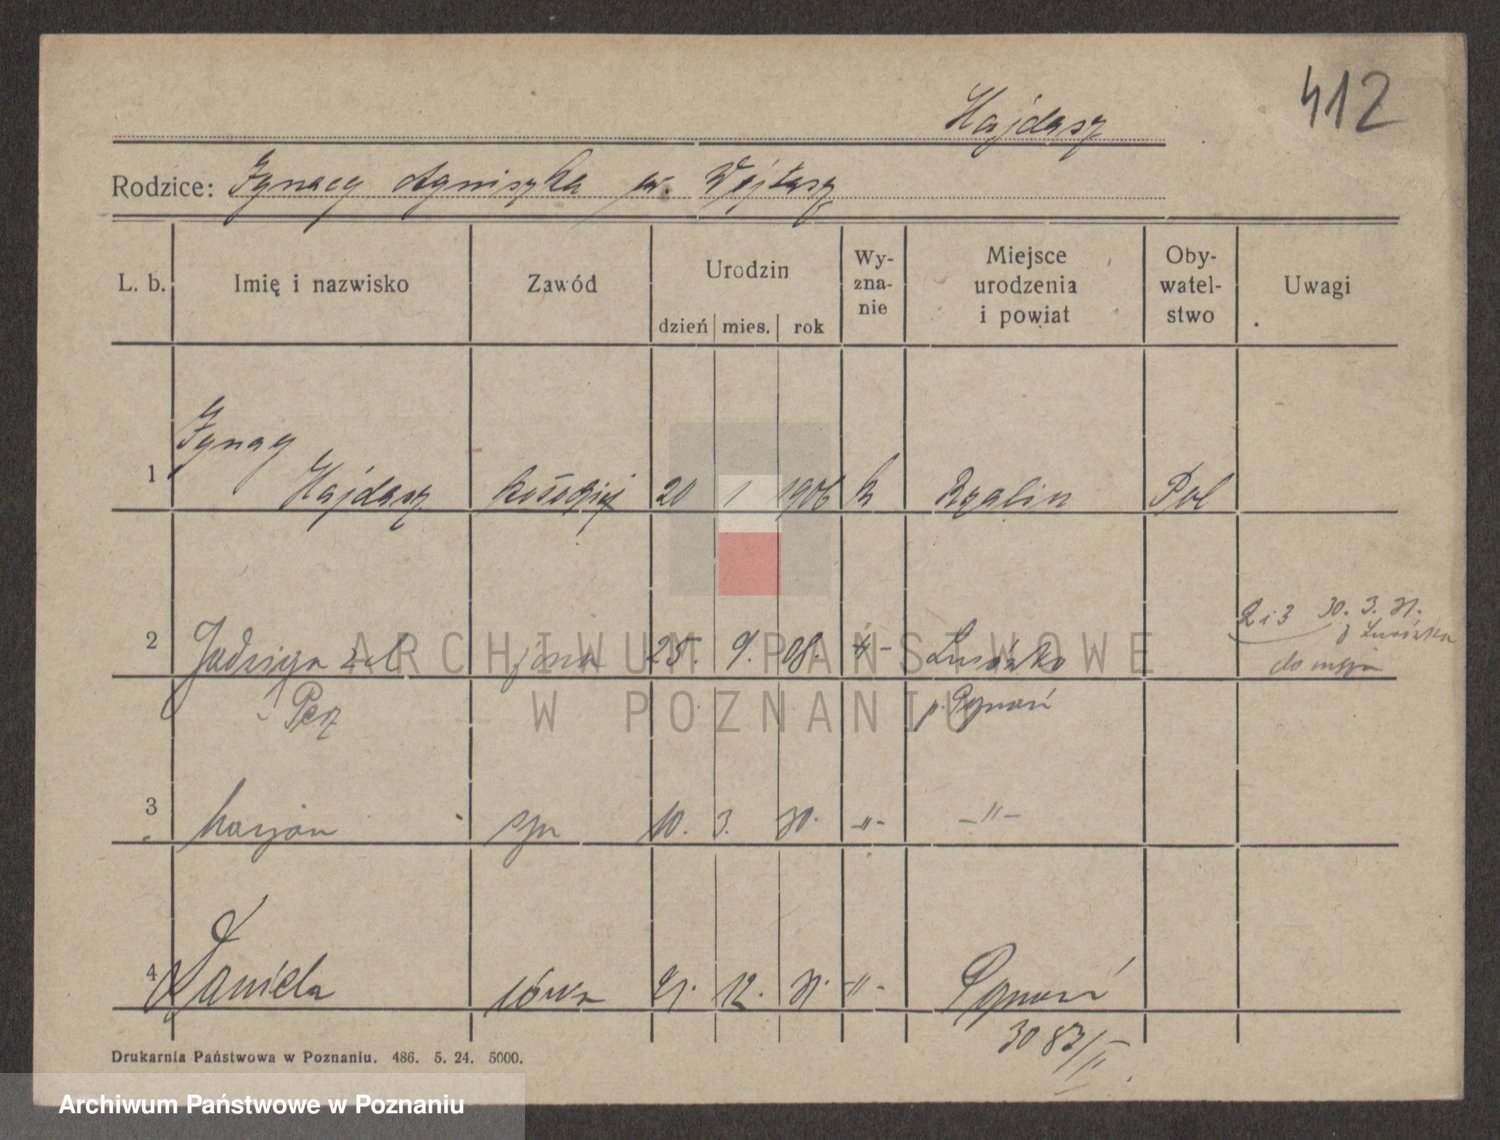 412
Hajdasz
Rodzice: Ignacy Agnieszka
L. b. Imię i nazwisko Zawód Urodzin dzień mies. rok Wy-zna-nie Miejsce urodzenia i powiat Oby-watel-stwo Uwagi
Ignacy
1 Hajdasz kołodziej 20 1 1906 k Rgalin Pol
2 i 3 30. 3. 31.
2 Jadwiga żona 25. 9. 08. -"- Lusówko
p. Poznań
3 Marjan syn 10. 3. 30. -"- -"-
4 Daniela córka 21. 12. 31. -"- Poznań
3083/II
Drukarnia Państwowa w Poznaniu. 486. 5. 24. 5000.
ARCHIWUM PAŃSTWOWE
W POZNANIU
Archiwum Państwowe w Poznaniu